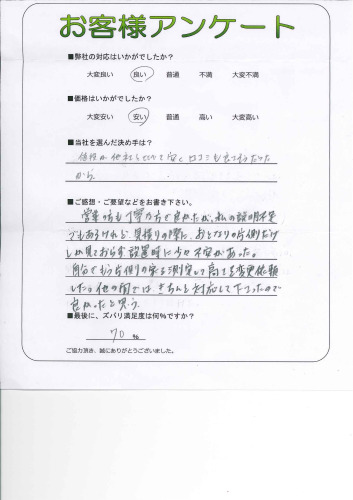 お客様アンケート
■弊社の対応はいかがでしたか?
大変良い 良い 普通 不満 大変不満
■価格はいかがでしたか?
大変安い 安い 普通 高い 大変高い
■当社を選んだ決め手は?
価格が他社とくらべて安く口コミも良さそうだった
から。
■ご感想・ご要望などをお書き下さい。
営業の方も丁寧な方で良かったが、私の説明不足
でもあるけれど、見積りの際に、おとなりの片側だけ
しか見ておらず設置時に少々不安があった。
自分でもう片側の 測定して高さを変更依頼
した。他の面では、きちんと対応して下さったので
良かったと思う。
■最後に、ズバリ満足度は何%ですか?
70 %
ご協力頂き、誠にありがとうございました。